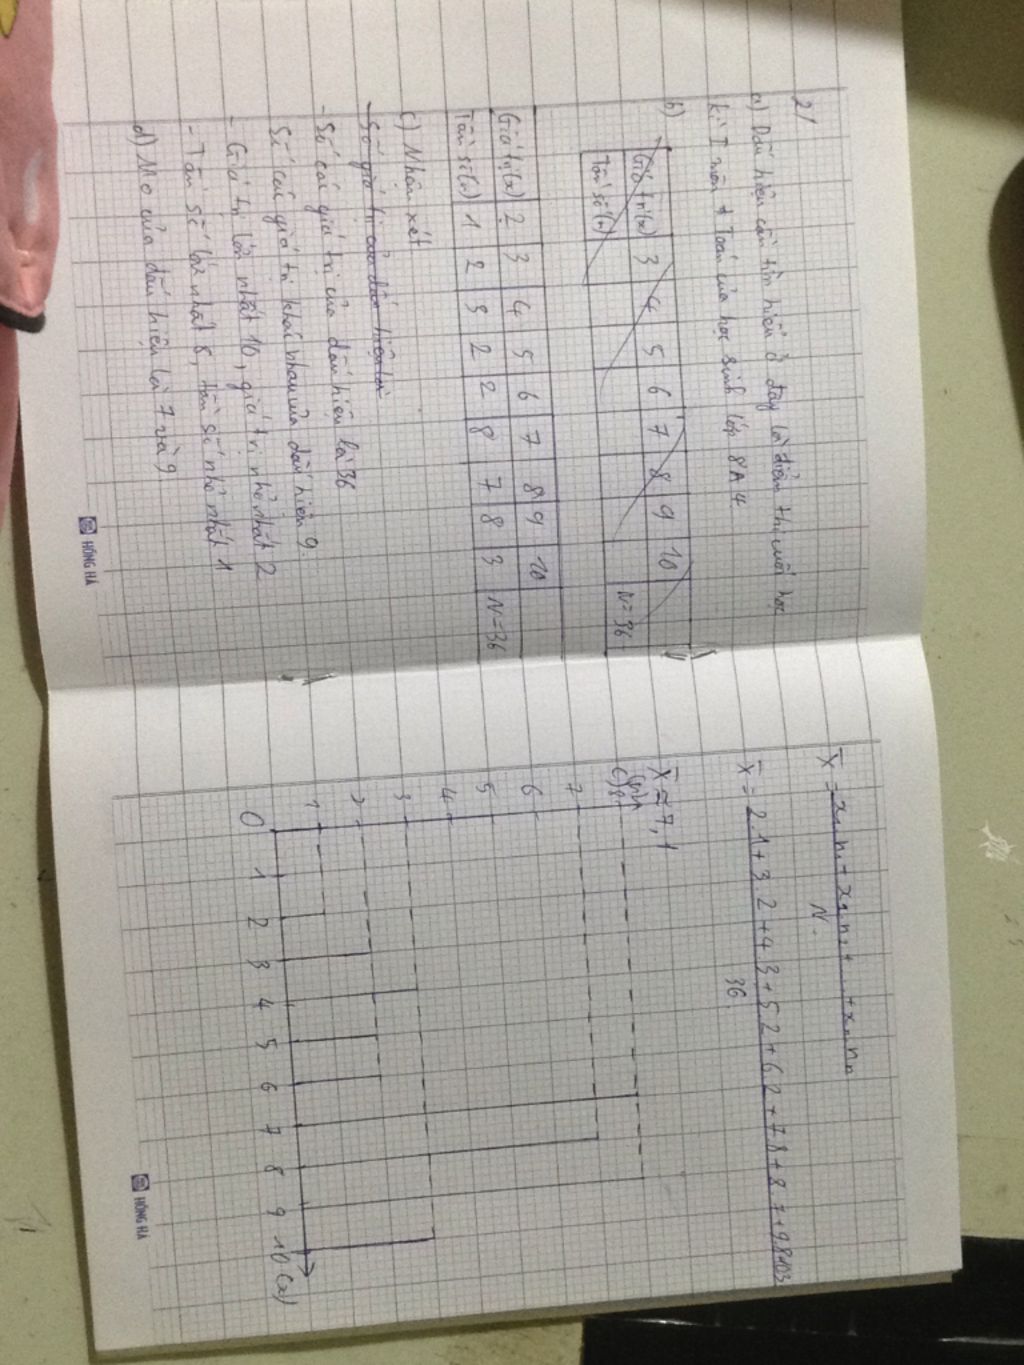 2/
a) Dấu hiệu cần tìm hiểu ở đây là điểm thi cuối học
kì I môn Toán của học sinh lớp 8A4
b)
Giá trị (x) 3 4 5 6 7 8 9 10
Tần số (n) N = 36
Giá trị (x) 2 3 4 5 6 7 8 9 10
Tần số (n) 1 2 3 2 2 8 7 8 3 N = 36
c) Nhận xét
- Số giá trị của dấu hiệu là
- Số các giá trị của dấu hiệu là 36
Số các giá trị khác nhau của dấu hiệu 9.
- Giá trị lớn nhất 10, giá trị nhỏ nhất 2
- Tần số lớn nhất 8, tần số nhỏ nhất 1
d) Mo của dấu hiệu là 7 và 9
HỒNG HÀ
X̄ = x₁n₁ + x₂n₂ + + xₙnₙ
N.
X̄ = 2.1 + 3.2 + 4.3 + 5.2 + 6.2 + 7.8 + 8.7 + 9.8 + 10.3
36
X̄ ≈ 7,1
e)
(n)
8
7
6
5
4
3
2
1
0 1 2 3 4 5 6 7 8 9 10 (x)
HỒNG HÀ